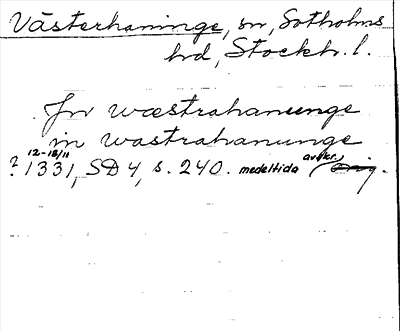 Västerhaninge, sn, Sotholms
hrd, Stockh. l.
Jn wæstrahanunge
in wastrahanunge
12-18/11
? 1331, SD 4, s. 240. medeltida avskr. orig.